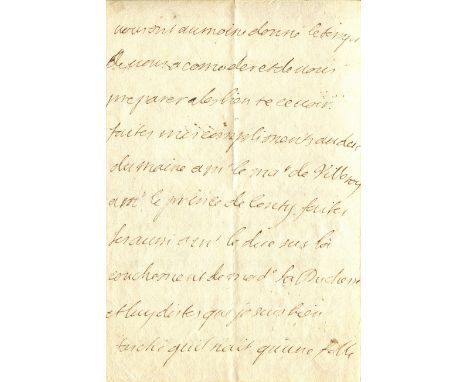 vous ont au moins donné le temps
de vous acomoder et de vous
preparer a les bien recevoir
faites mes compliments au duc
du maine a mr le mal de Villeroy
a mr le prince de Conty faites
aussi a mr le duc sur la
couchement de made la Duchesse
et luy dites que je suis bien
fasché quil nait quune fille